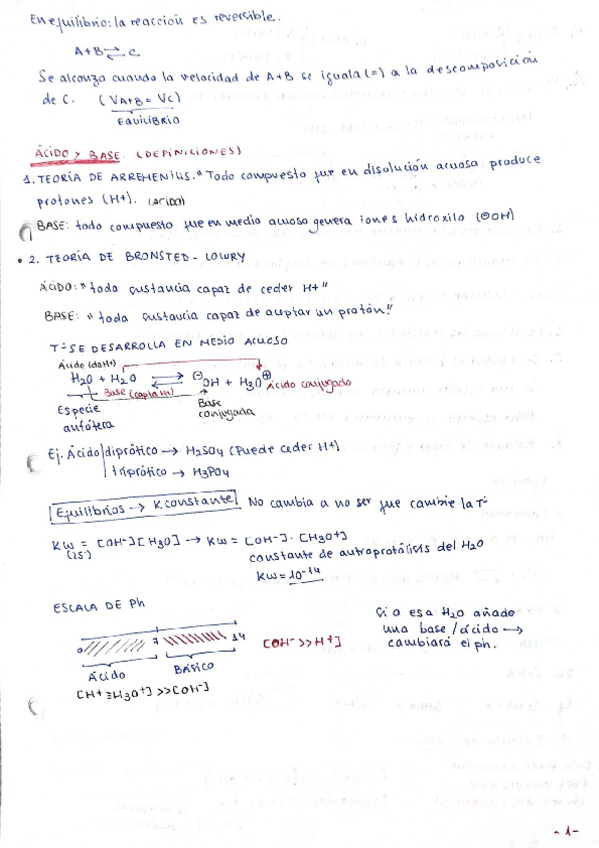 En equilibrio: la reacción es reversible.
A + B ⇌ C
Se alcanza cuando la velocidad de A+B se iguala (=) a la descomposición
de C. (VA+B = Vc)
EQUILIBRIO
ÁCIDO Y BASE (DEFINICIONES)
1. TEORÍA DE ARREHENIUS. "Todo compuesto que en disolución acuosa produce
protones (H+). (ÁCIDO)
BASE: todo compuesto que en medio acuoso genera iones hidroxilo (⊖OH)
• 2. TEORÍA DE BRONSTED - LOWRY
ÁCIDO: "toda sustancia capaz de ceder H+"
BASE: "toda sustancia capaz de aceptar un protón."
Tª SE DESARROLLA EN MEDIO ACUOSO
Ácido (da H+)
H2O + H2O ⇌ ⊖OH + H3O⊕ Ácido conjugado
Base (capta H+)
Especie anfótera
Base conjugada
Ej. Ácido diprótico → H2SO4 (Puede ceder H+)
triprótico → H3PO4
Equilibrios → K constante No cambia a no ser que cambie la Tª
Kw = [OH-][H3O] → Kw = [OH-]·[H3O+]
(25º)
constante de autroprotólisis del H2O
Kw = 10-14
ESCALA DE Ph
0 7 14
Ácido Básico
[OH- >> H+]
[H+ ≡ H3O+] >> [OH-]
Si a esa H2O añado
una base / ácido →
cambiará el ph.
- 1 -